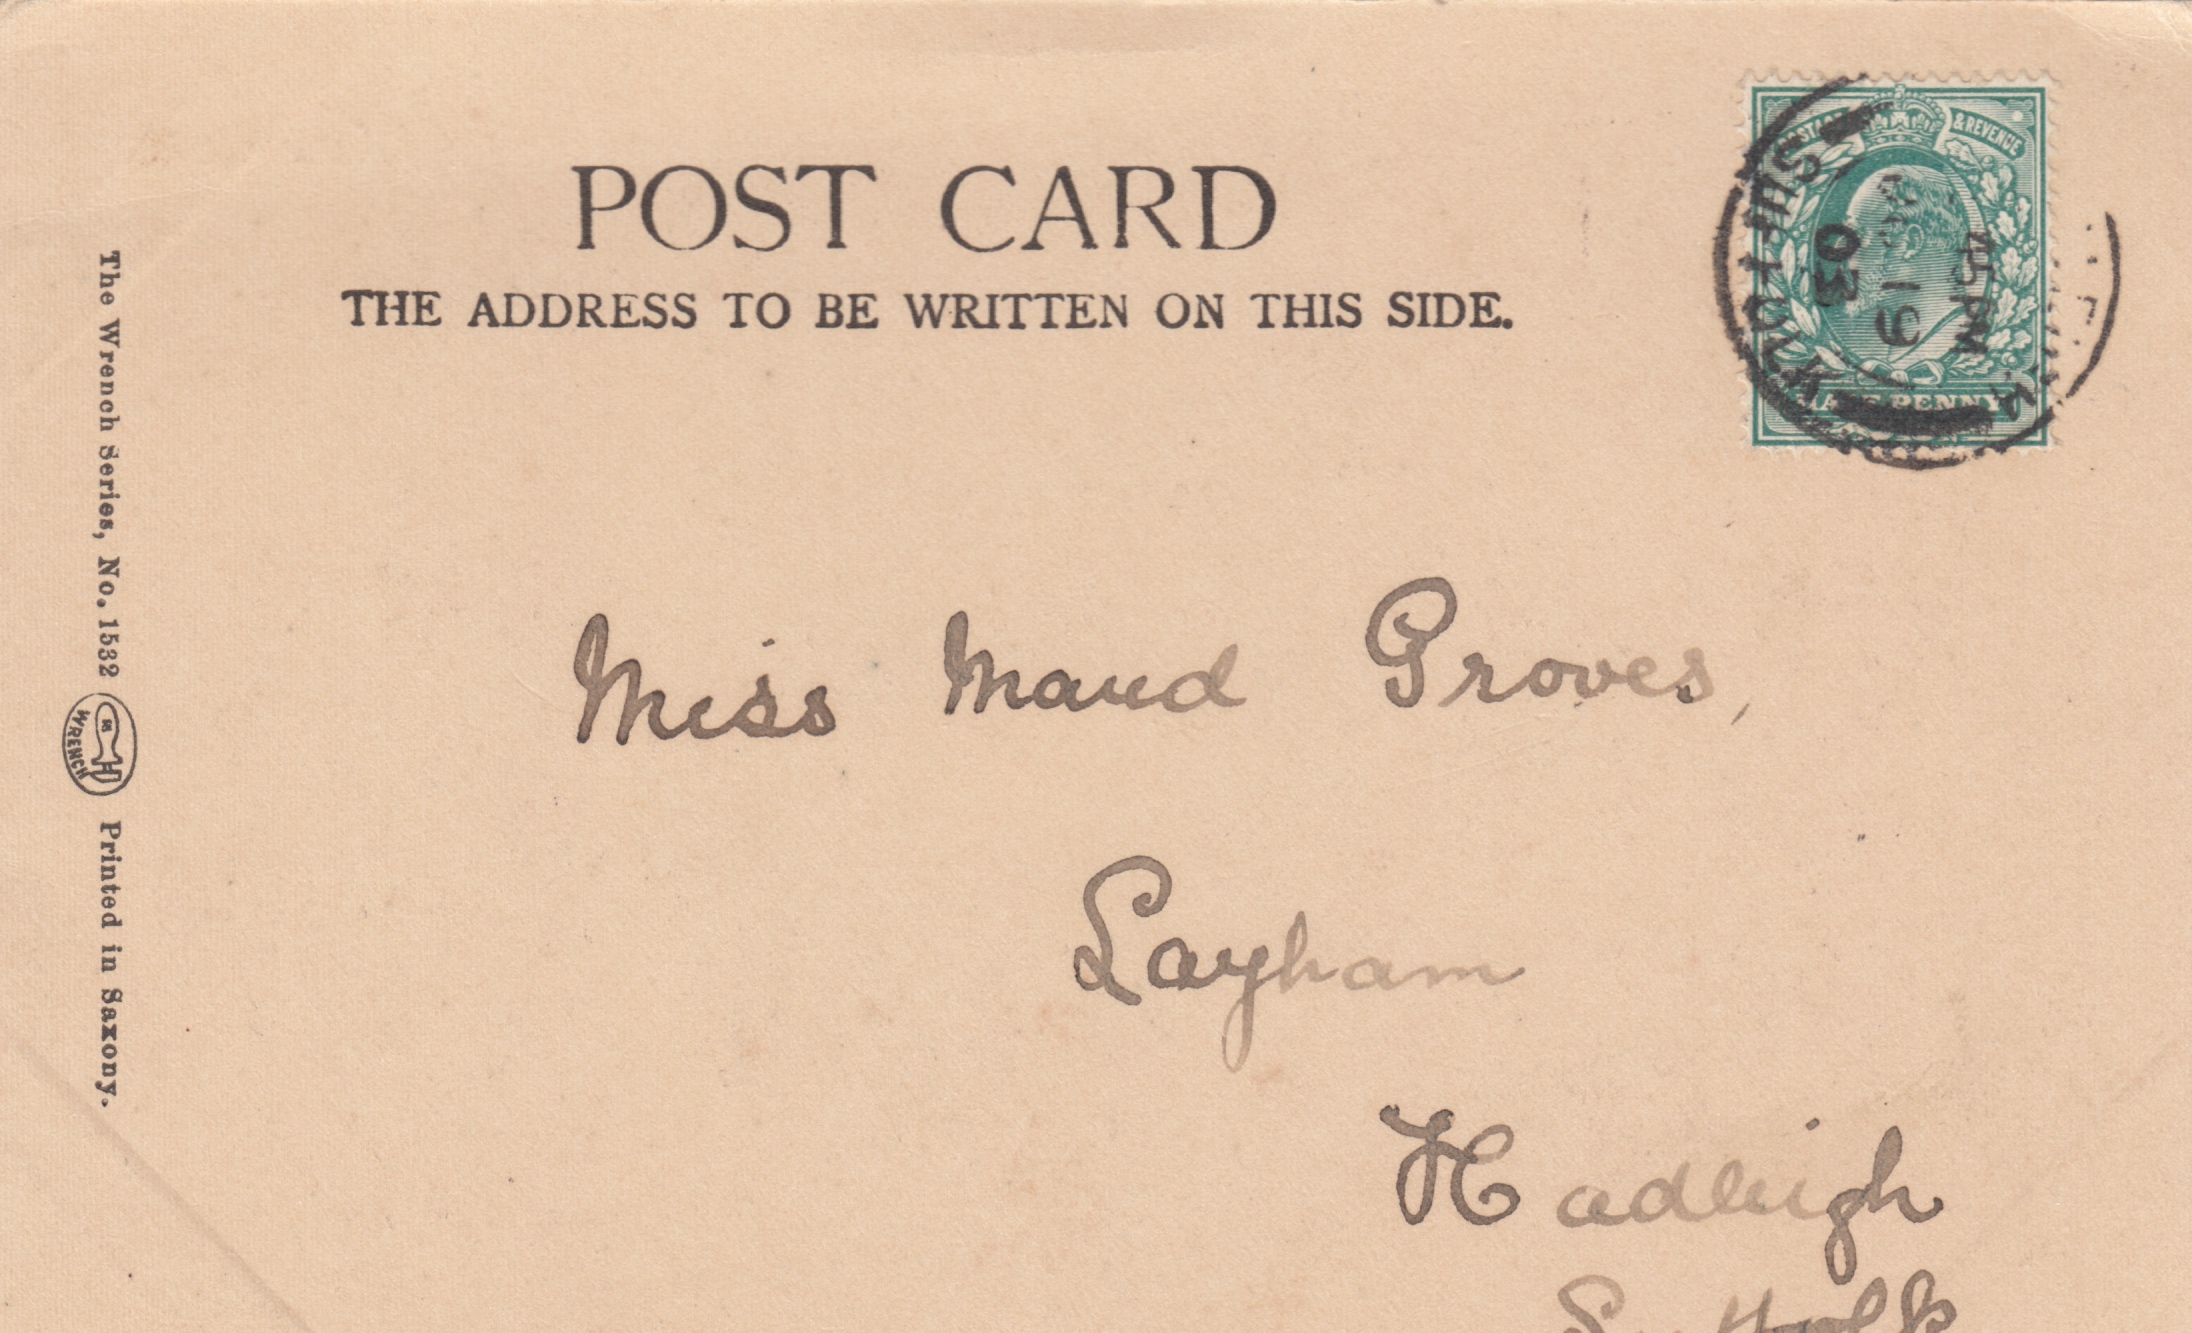 POST CARD
THE ADDRESS TO BE WRITTEN ON THIS SIDE.
& REVENUE
PENNY
SUFFOLK
45PM
19
03
Miss Maud Groves,
Layham
Hadleigh
Suffolk
The Wrench Series, No. 1532
WRENCH
Printed in Saxony.